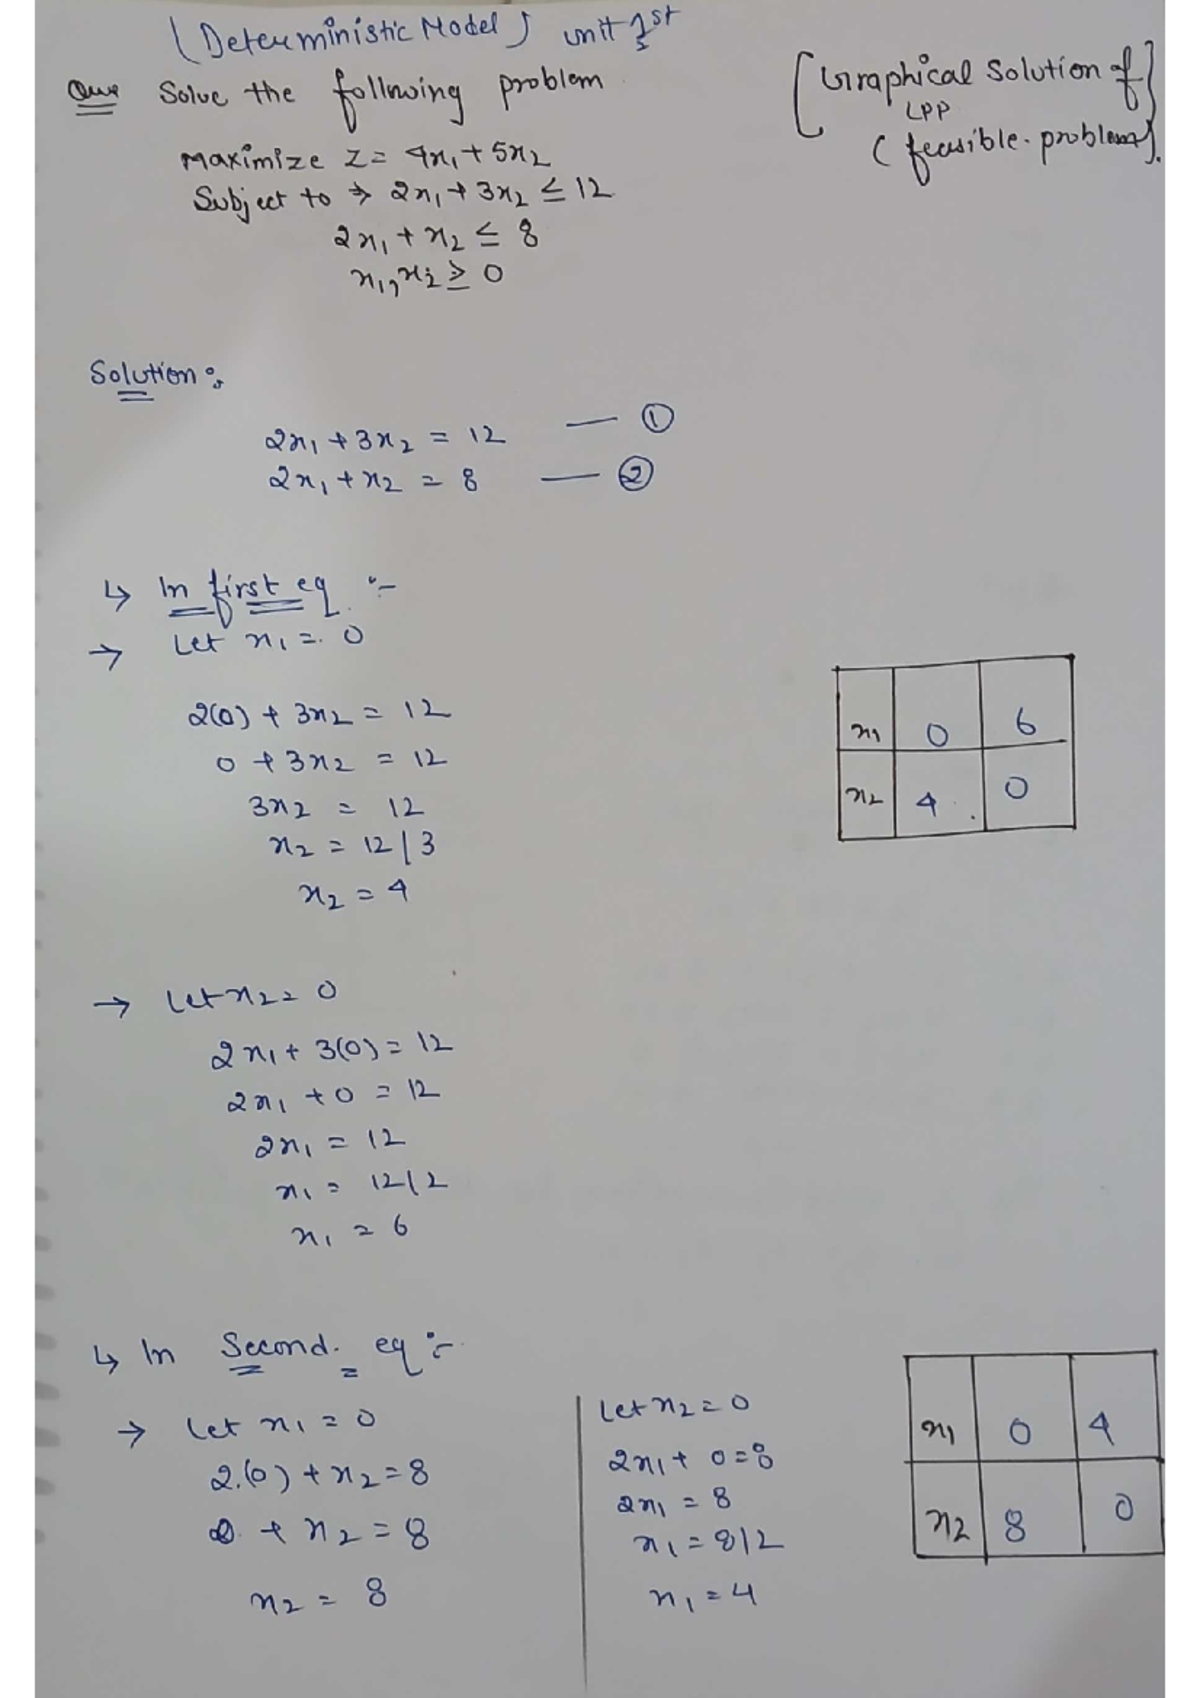 (Deterministic Model) unit 1st
Que Solve the following problem
[Graphical Solution of
LPP
(feasible. problem)].
Maximize Z = 4x₁ + 5x₂
Subject to ⇒ 2x₁ + 3x₂ ≤ 12
2x₁ + x₂ ≤ 8
x₁, x₂ ≥ 0
Solution :
2x₁ + 3x₂ = 12 — ①
2x₁ + x₂ = 8 — ②
↳ In first eq :-
→ Let x₁ = 0
2(0) + 3x₂ = 12
0 + 3x₂ = 12
3x₂ = 12
x₂ = 12/3
x₂ = 4
x₁ 0 6
x₂ 4 0
→ Let x₂ = 0
2x₁ + 3(0) = 12
2x₁ + 0 = 12
2x₁ = 12
x₁ = 12/2
x₁ = 6
↳ In Second eq :-
→ Let x₁ = 0
2.(0) + x₂ = 8
0 + x₂ = 8
x₂ = 8
Let x₂ = 0
2x₁ + 0 = 8
2x₁ = 8
x₁ = 8/2
x₁ = 4
x₁ 0 4
x₂ 8 0